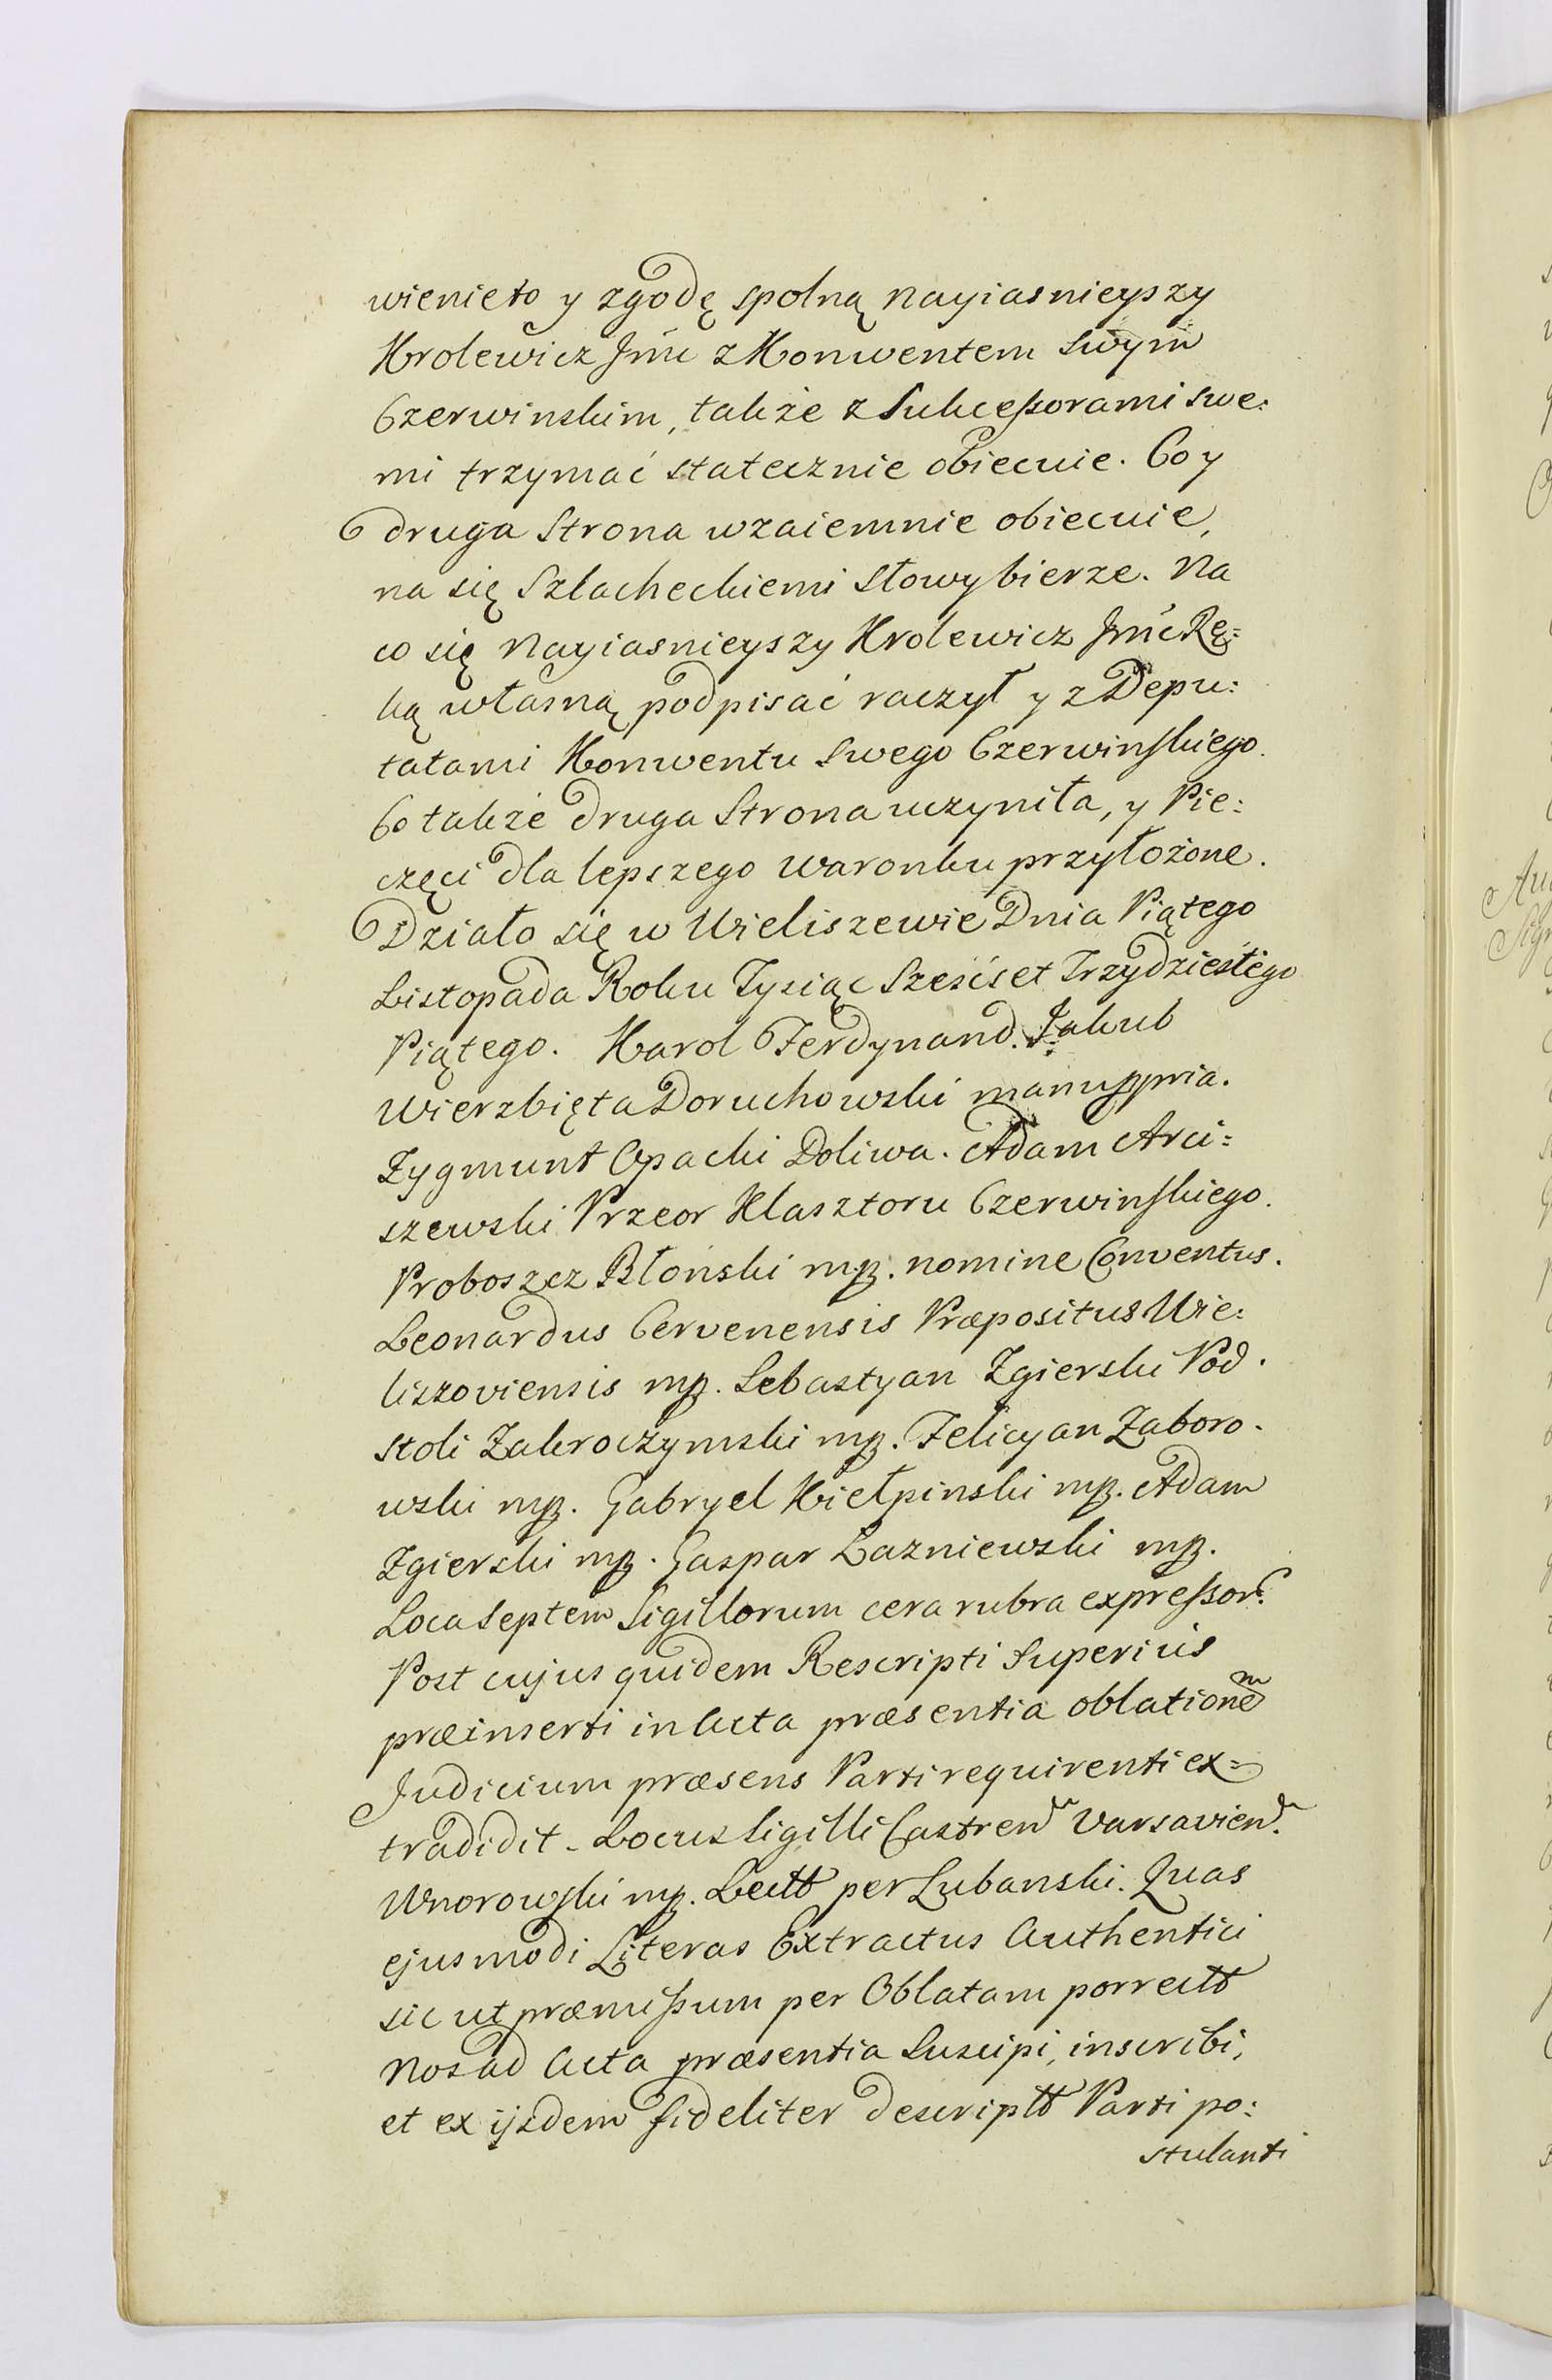 wienie to y zgodę spolną Nayiasnieyszy
Krolewicz Jmć z Konwentem Swym
Czerwinskim, także z Sukceßorami swe:
mi trzymać statecznie obiecuie. Co y
druga Strona wzaiemnie obiecuie,
na się Szlacheckiemi Słowy bierze. Na
co się Nayiasnieyszy Krolewicz Jmć Rę:
ką własną podpisać raczył y z Depu:
tatami Konwentu Swego Czerwinskiego.
Co także druga Strona uczyniła, y Pie:
częci dla lepszego waronku przyłożone.
Działo się w Wieliszewie Dnia Piątego
Listopada Roku Tysiąc Sześćset Trzydziestego
Piątego. Karol Ferdynand. Jakub
Wierzbięta Doruchowski manu ppria.
Zygmunt Opacki Doliwa. Adam Arci:
szewski Przeor Klasztoru Czerwinskiego.
Proboszcz Błoński mp. nomine Conventus.
Leonardus Cervenensis Præpositus Wie:
liszoviensis mp. Sebastyan Zgierski Pod.
stoli Zakroczymski mp. Felicyan Zaboro.
wski mp. Gabryel Kiełpinski mp. Adam
Zgierski mp. Gaspar Lazniewski mp.
Loca Septem Sigillorum cera rubra expreßor:
Post cujus quidem Rescripti Superius
præinserti in Acta præsentia oblationem
Judicium præsens Parti requirenti ex=
tradidit. Locus Sigilli Castren Varsavien.
Wnorowski mp. Lectt per Lubanski. Quas
ejusmodi Literas Extractus Authentici
sic ut præmißum per Oblatam porrectt
Nos ad Acta præsentia Suscipi, inscribi,
et ex ijsdem fideliter descriptt Parti po:
stulanti